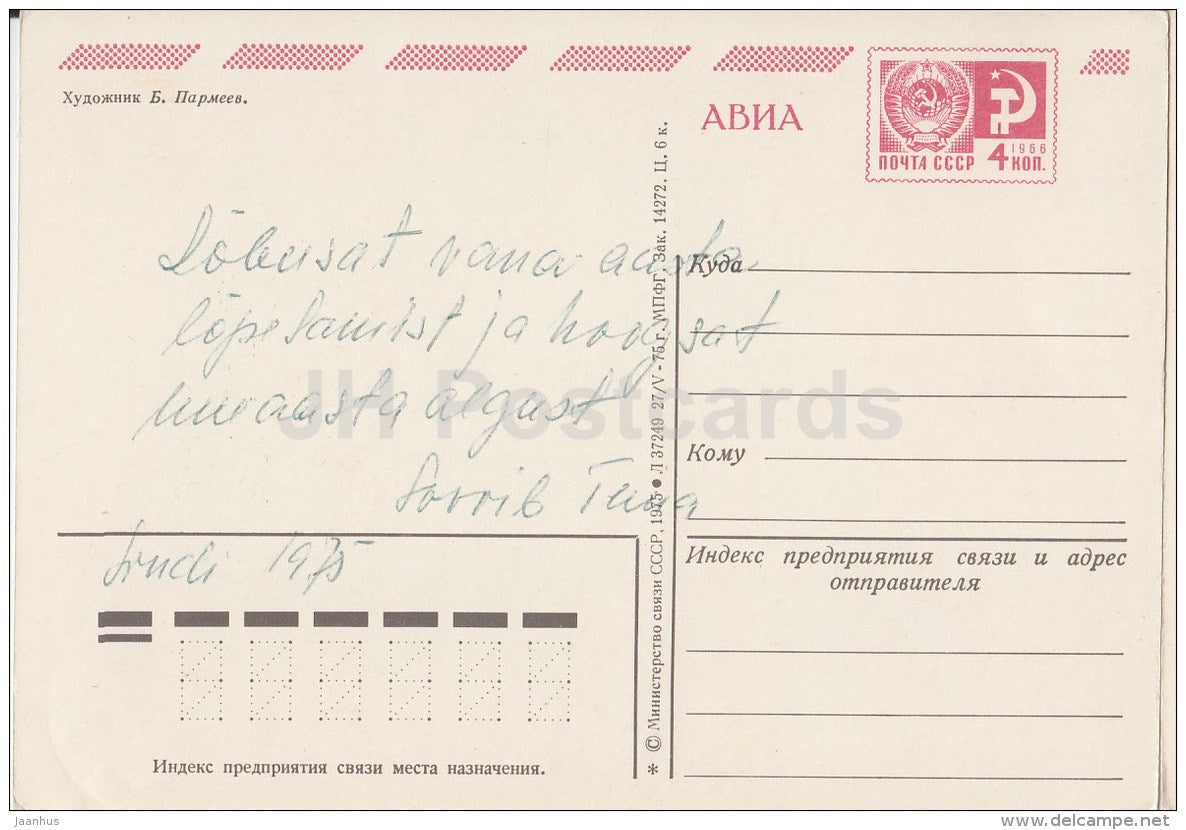 Художник Б. Пармеев.
АВИА
ПОЧТА СССР
1966
4 КОП.
Lõbusat vana aasta
lõpetamist ja hoogsat
uue aasta algust
Soovib
Sindi 1975
Куда
Кому
Индекс предприятия связи и адрес
отправителя
© Министерство связи СССР, 1975 ● Л 37249 27/V - 75 г. МПФГ. Зак. 14272. Ц. 6 к.
Индекс предприятия связи места назначения.
JH Postcards
Jaanhus
www.delcampe.net